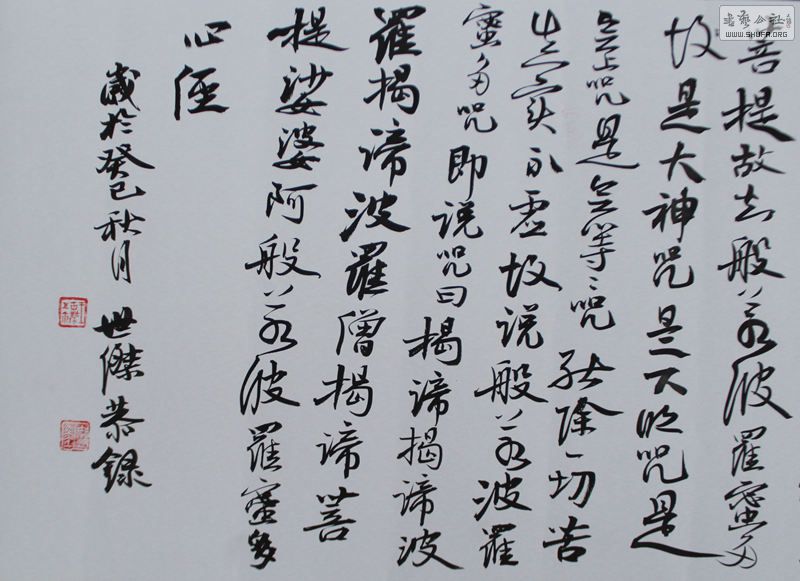 菩提故知般若波羅蜜多
故是大神咒是大明咒是
无上咒是无等々咒能除一切苦
真实不虚故说般若波羅
蜜多咒即说咒曰揭諦揭諦波
羅揭諦波羅僧揭諦菩
提娑婆阿般若波羅蜜多
心经
歲於癸巳秋月世傑恭録
书艺公社
WWW.SHUFA.ORG